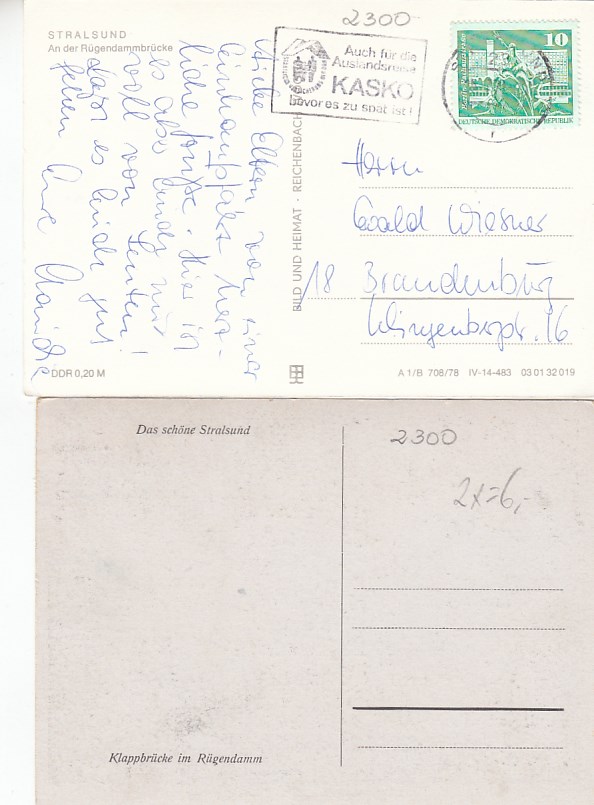 2300
STRALSUND
An der Rügendammbrücke
Auch für die
Auslandsreise
KASKO
bevor es zu spät ist!
10
DEUTSCHE DEMOKRATISCHE REPUBLIK
Eltern von einer
liche Grüße. Hier ist
es aber
voll von Leuten!
dass es Euch gut
gehen
BILD UND HEIMAT · REICHENBACH
Herrn
Ewald Wiesner
18 Brandenburg
Klingenbergstr. 16
DDR 0,20 M
A 1/B 708/78 IV-14-483 03 01 32 019
Das schöne Stralsund
2300
2x=6,-
Klappbrücke im Rügendamm